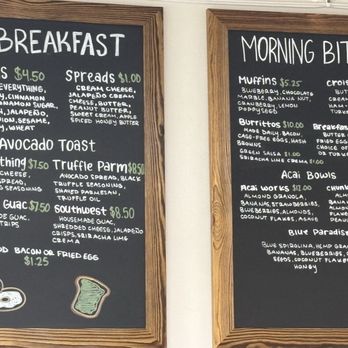 BREAKFAST
S $4.50
EVERYTHING,
Y, CINNAMON
CINNAMON SUGAR,
N, JALAPEÑO,
ION, SESAME,
Y, WHEAT
Spreads $1.00
CREAM CHEESE,
JALAPEÑO CREAM
CHEESE, BUTTER,
PEANUT BUTTER,
SWEET CREAM, APPLE
SPICED HONEY BUTTER
AVOCADO TOAST
thing $7.50
CHEESE,
SPREAD,
SEASONING
Truffle Parm $8.50
AVOCADO SPREAD, BLACK
TRUFFLE SEASONING,
SHAVED PARMESAN,
TRUFFLE OIL
GUAC $7.50
GUAC,
TRIPS
Southwest $8.50
HOUSEMADE GUAC
SHREDDED CHEESE, JALAPEÑO
CRISPS, SRIRACHA LIME
CREMA
BACON OR FRIED EGG
$1.25
MORNING BIT
Muffins $5.25
BLUEBERRY, CHOCOLATE
MARBLE, BANANA NUT,
CRANBERRY, LEMON
POPPYSEED
croi
BUTTE
TURK
Burrititos $10.00
MADE DAILY, BACON,
CAGE-FREE EGGS, HASH
BROWNS
GREEN SALSA $1.00
SRIRACHA LIME CREMA $1.00
Breakfas
BUTTER
FRIED EGG
CHOICE
OR TURKE
Acai Bowls
Acai Works $12.00
ALMOND GRANOLA,
BANANAS, STRAWBERRIES,
BLUEBERRIES, ALMONDS,
COCONUT FLAKES, HONEY
ALMOND
BUTTER,
BANANAS,
COCONUT
AGAVE
Blue Paradis
BLUE SPIRULINA, HEMP GRAN
BANANAS, BLUEBERRIES,
SEEDS, COCONUT FLAKES,
HONEY